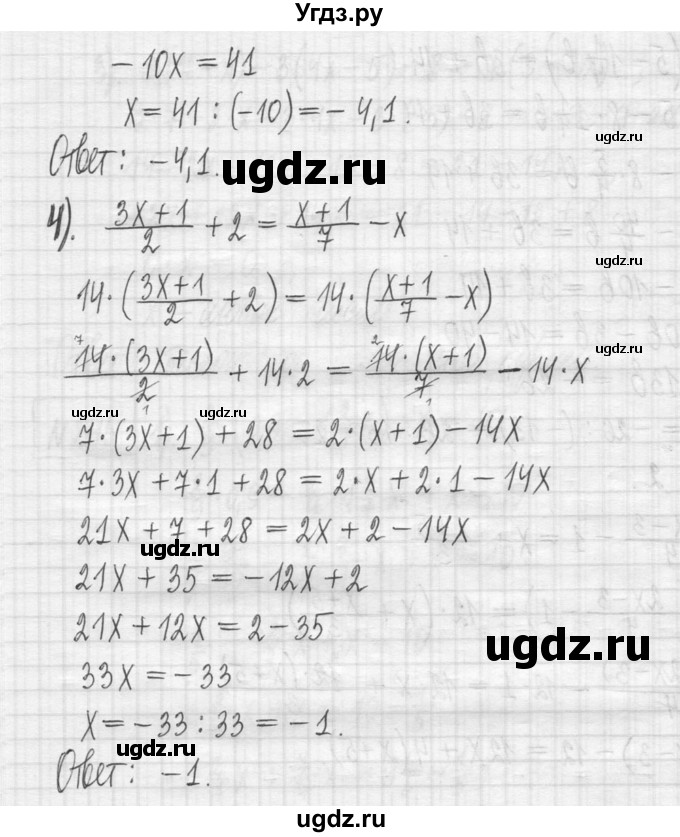 Угдз.ру
- 10x = 41
x = 41 : (-10) = - 4,1.
Ответ: -4,1.
ugdz.ru
ugdz.ru
4). (3x+1)/2 + 2 = (x+1)/7 - x
ugdz.ru
14·((3x+1)/2 + 2) = 14·((x+1)/7 - x)
14·(3x+1)/2 + 14·2 = 14·(x+1)/7 - 14·x
7 1 2 1
ugdz.ru
ugdz.ru
ugdz.ru
7·(3x+1) + 28 = 2·(x+1) - 14x
7·3x + 7·1 + 28 = 2·x + 2·1 - 14x
21x + 7 + 28 = 2x + 2 - 14x
ugdz.ru
21x + 35 = -12x + 2
21x + 12x = 2 - 35
ugdz.ru
33x = - 33
x = - 33 : 33 = - 1.
ugdz.ru
Ответ: -1.
ugdz.ru
ugdz.ru